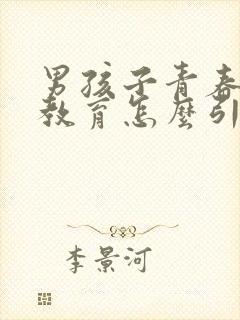 男孩子青春
教育怎麼引
李景河